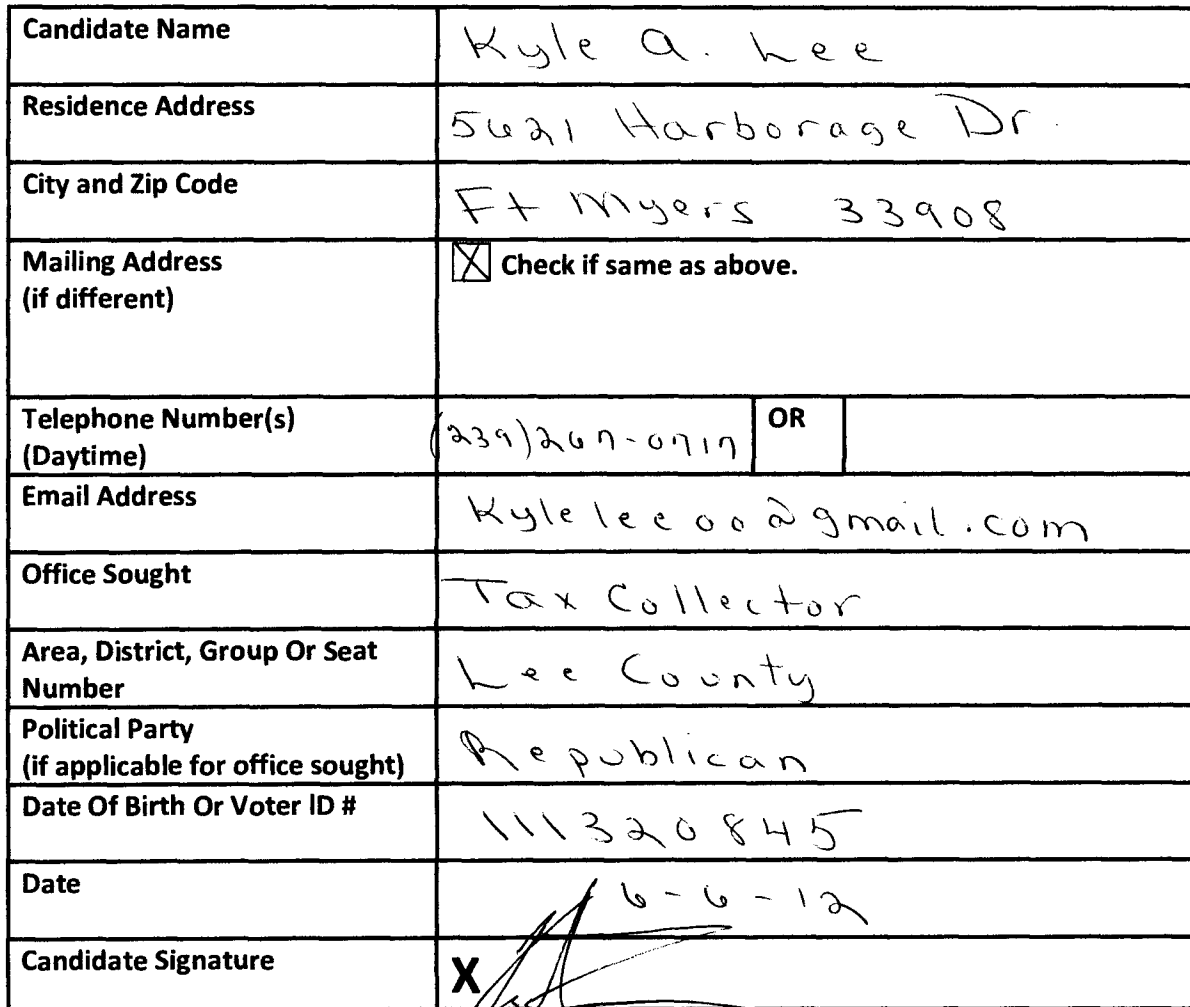 Candidate Name
Kyle A. Lee
Residence Address
5621 Harborage Dr.
City and Zip Code
Ft Myers 33908
Mailing Address
(if different)
X Check if same as above.
Telephone Number(s)
(Daytime)
(239)267-0717
OR
Email Address
Kylelee00@gmail.com
Office Sought
Tax Collector
Area, District, Group Or Seat
Number
Lee County
Political Party
(if applicable for office sought)
Republican
Date Of Birth Or Voter ID #
111320845
Date
6-6-12
Candidate Signature
X